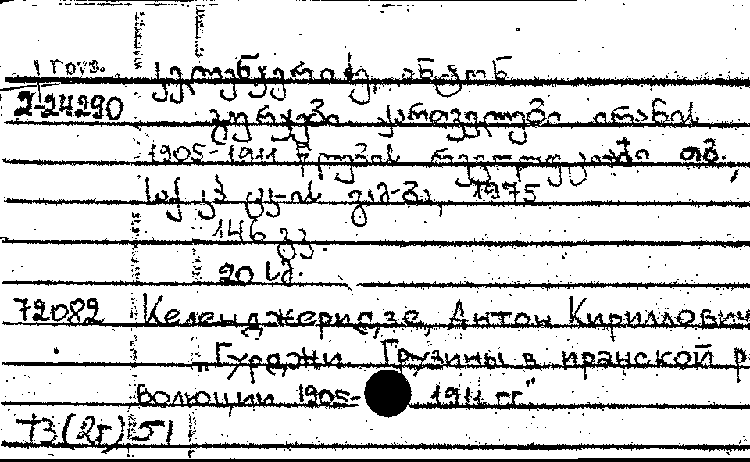 1 груз. კელენჯერიძე, ანტონ
2-24290 გურჯები ქართველები ირანის
1905-1911 წლების რევოლუციაში თბ.,
საქ. კპ ცკ-ის გამ-ბა, 1975
146 გვ.
20 სმ.
72082 Келенджеридзе, Антон Кириллович
„Гурджи". Грузины в иранской р
волюции 1905- 1911 гг"
ТЗ(2г)51